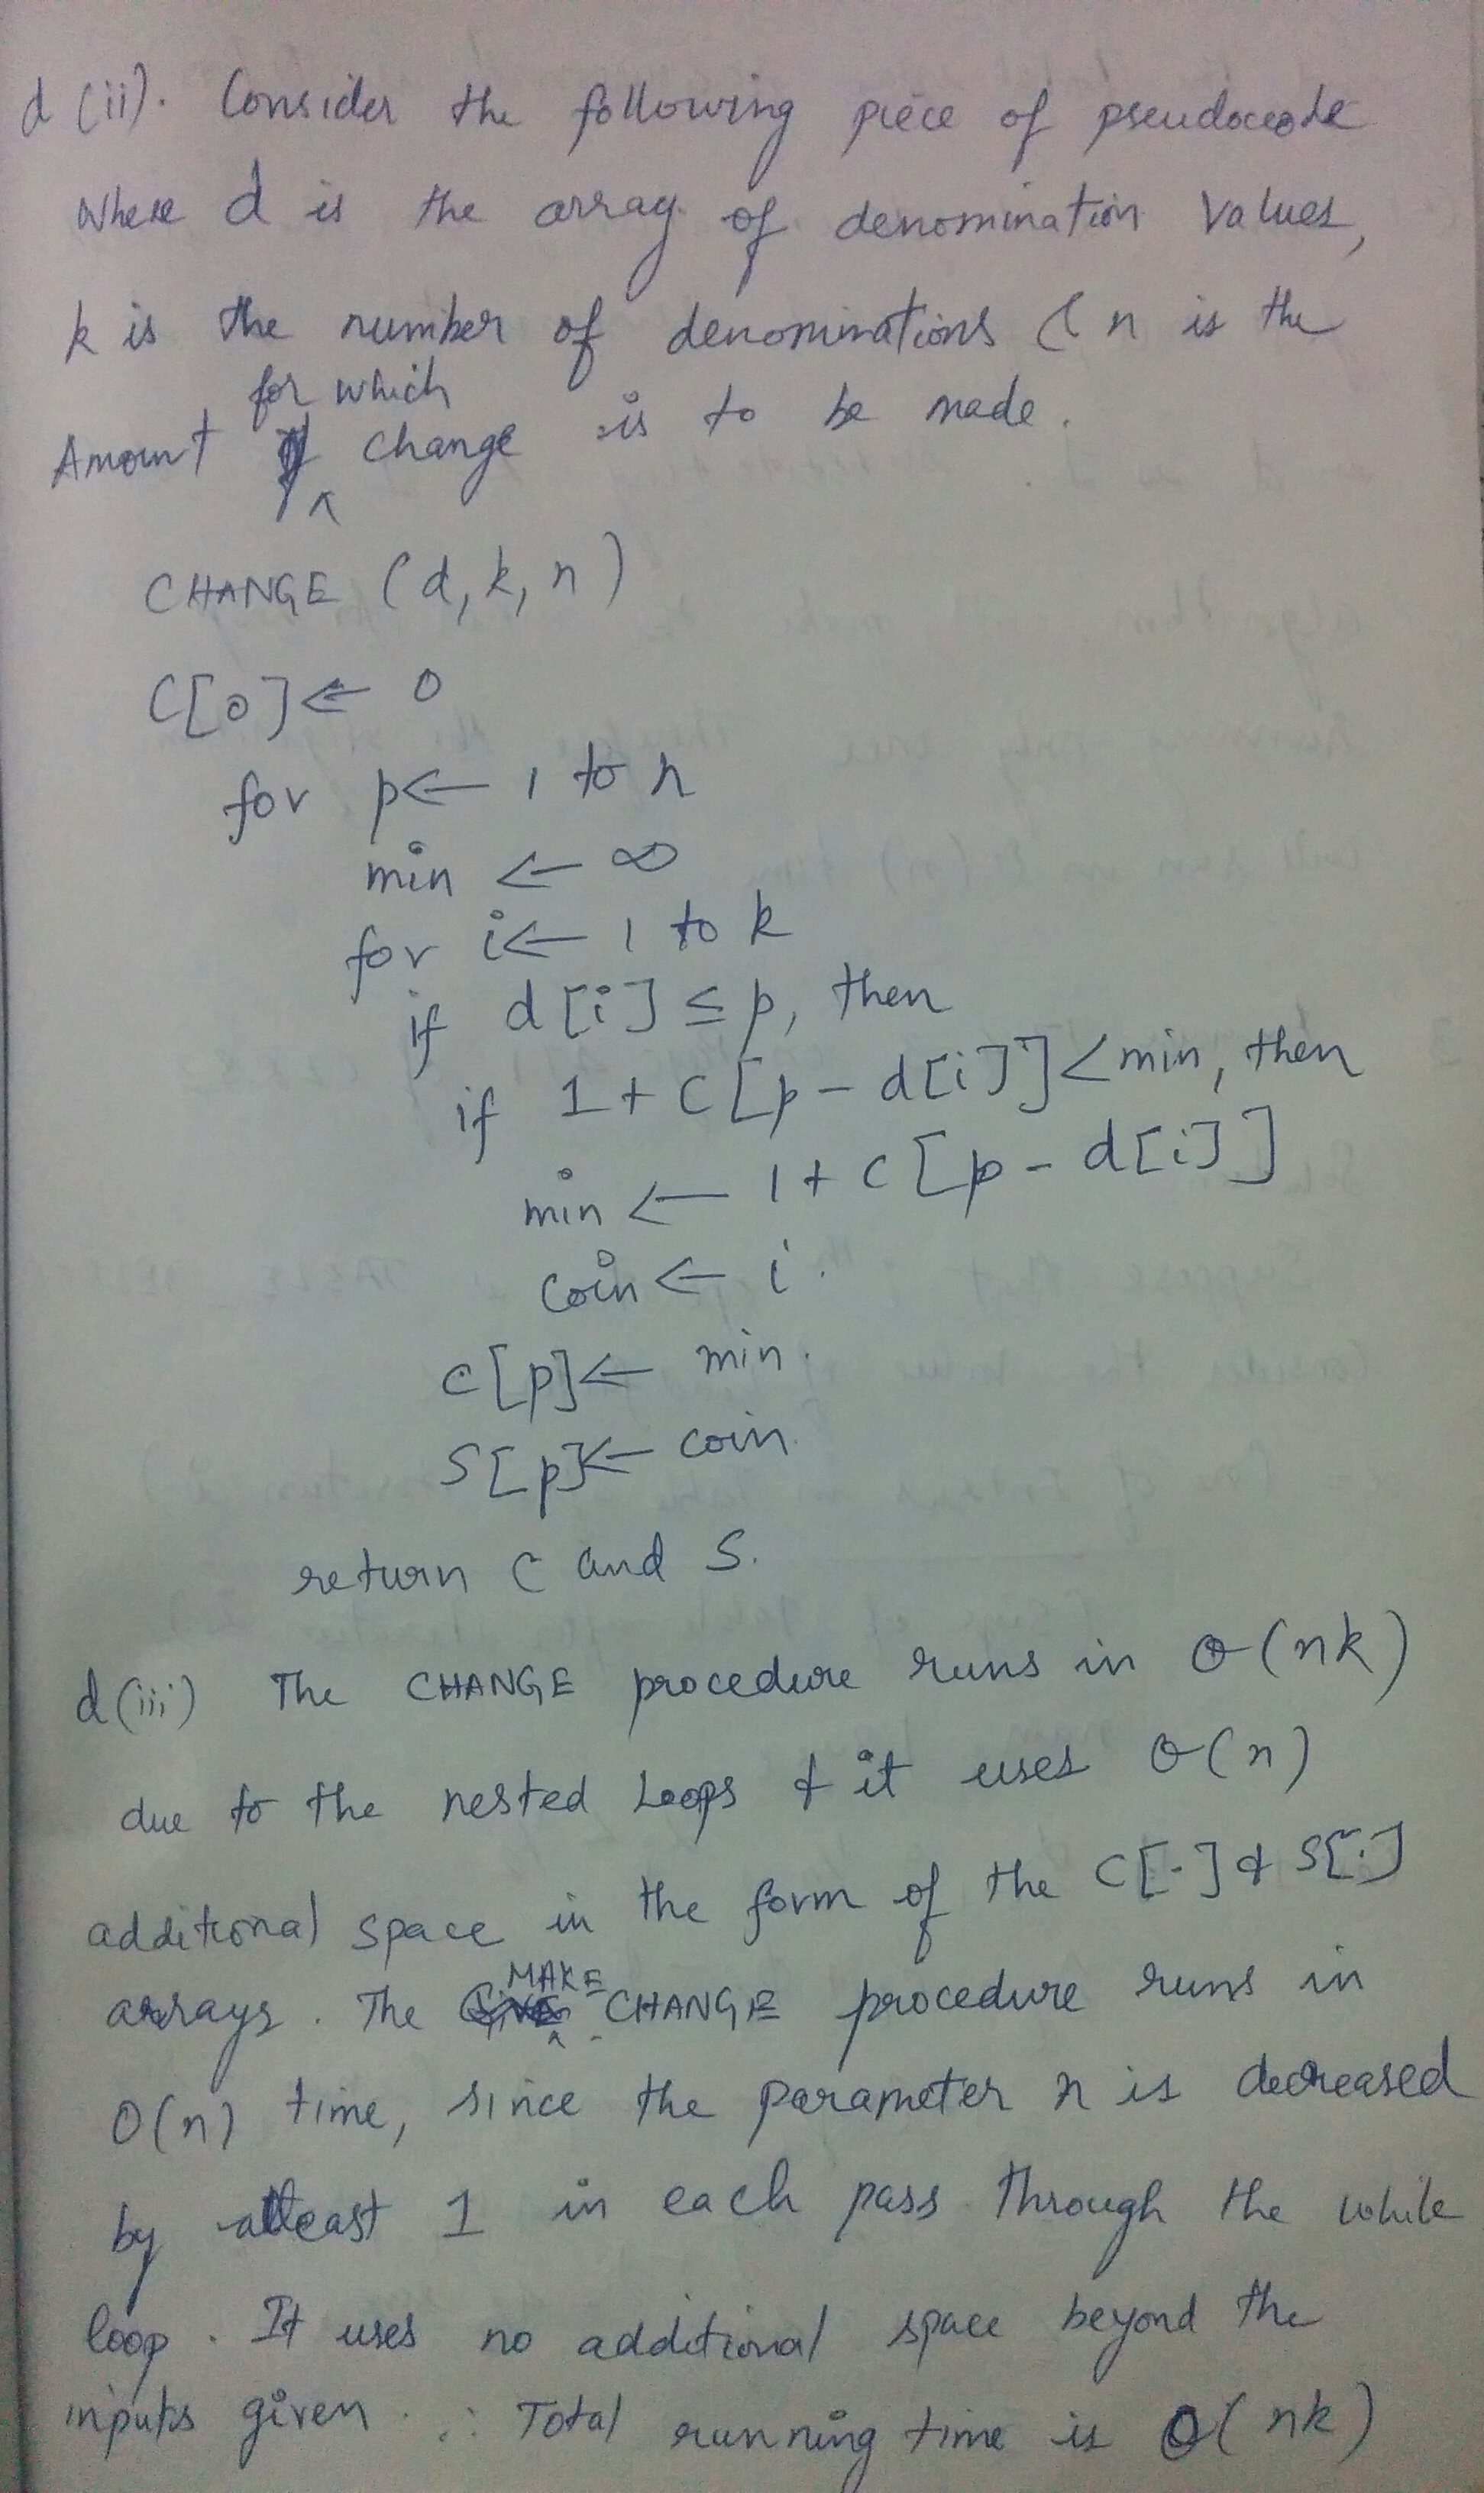 d (ii). Consider the following piece of pseudocode
where d is the array of denomination values,
k is the number of denominations & n is the
for which
Amount change is to be made.
CHANGE (d, k, n)
C[0] ← 0
for p ← 1 to n
min ← ∞
for i ← 1 to k
if d[i] ≤ p, then
if 1 + C[p - d[i]] < min, then
min ← 1 + C[p - d[i]]
coin ← i.
C[p] ← min.
S[p] ← coin.
return C and S.
d (iii) The CHANGE procedure runs in Θ(nk)
due to the nested loops & it uses Θ(n)
additional space in the form of the C[.] & S[.]
MAKE
arrays. The CHANGE procedure runs in
O(n) time, since the parameter n is decreased
by atleast 1 in each pass through the while
loop. It uses no additional space beyond the
inputs given. ∴ Total running time is Θ(nk)